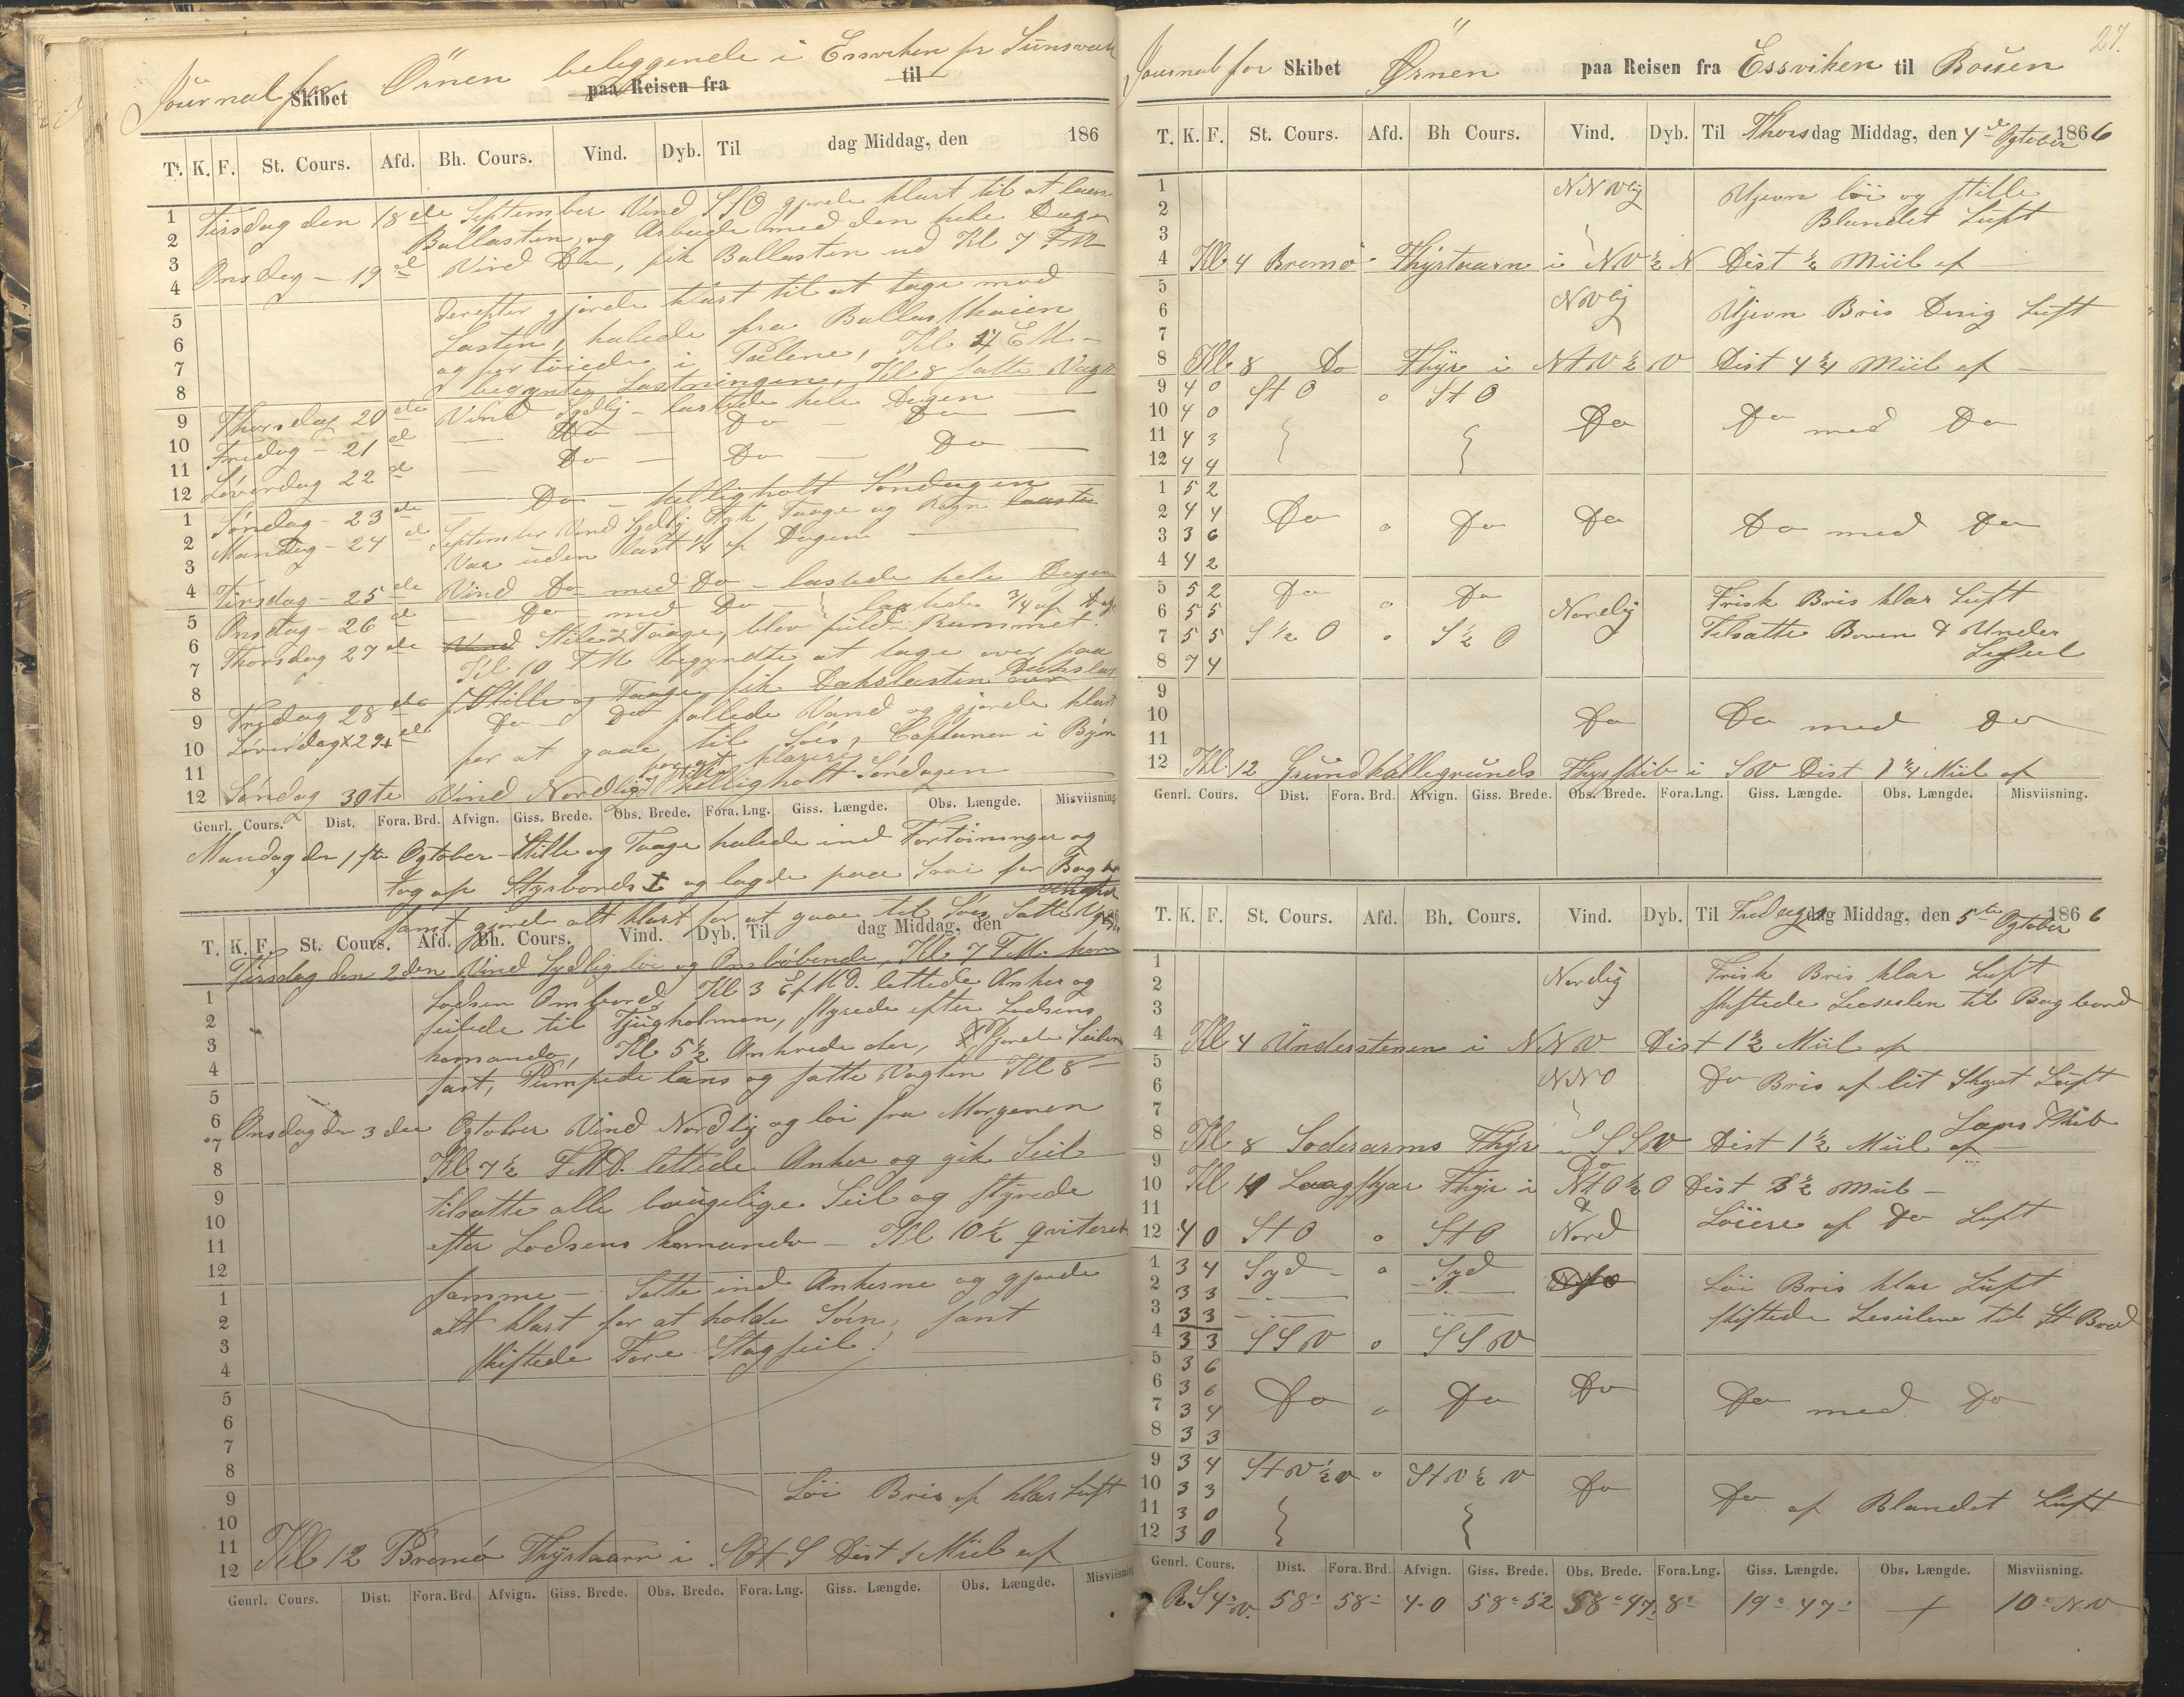 Journal for Skibet Örnen beleggende i Essviken pr Sunsvall
paa Reisen fra til
T. K. F. St. Cours. Afd. Bh. Cours. Vind. Dyb. Til dag Middag, den 186
1 Tirsdag den 18de September Vind SSO gjorde klart til at
2 Ballasten, og Arbeide med den hele Dagen
3 Onsdag - 19de Vind Do, fik Ballasten ud Kl 7 FM
4 derefter gjorde klart til at tage mod
5 Lasten, halede fra Ballastkaien
6 og fortöiede i Pælene, Kl 4 EM -
7 begynte Lastningen, Kl 8 satte Vagt
8 Thorsdag 20de Vind Sydlig - lastede hele Dagen
9 Fredag - 21de - Do - Do - Do -
10 Löverdag 22de - Do - Do - Do -
11
12 Söndag - 23de - Do - helligholt Söndagen
1 Mandag - 24de September Vind Sydlig Tyk Taage og Regn
2 Var uden last 1/4 af Dagen -
3
4 Tirsdag - 25de Vind Do med Do - lastede hele Dagen
5 Onsdag - 26de - Do med Do - lastede 3/4 af Dag
6 Thorsdag 27de Stille & Taage, blev fuld Rummet.
7 Kl 10 FM begyndte at tage over paa
8 Fredag 28de Stille og Taage fik Dækslasten
9 Löverdag 29de Do - Do fyllede Vand og gjorde klart
10 for at gaae til Söes, Captainen i Byen
11 for at klarere
12 Söndag 30te Vind Nordlig Helligholt Söndagen
Genrl. Cours. Dist. Fora. Brd. Afvign. Giss. Brede. Obs. Brede. Fora. Lng. Giss. Længde. Obs. Længde. Misviisning.
Mandag den 1ste Ogtober - Stille og Taage halede ind Fortöininger og
tog op Styrbords og lagde paa for Bagbord
samt gjorde alt klart for at gaae til Söes Satte
T. K. F. St. Cours. Afd. Bh. Cours. Vind. Dyb. Til dag Middag, den
Tirsdag den 2den Vind Sydlig löi og Omlöbende, Kl 7 FM. kom
1 Lodsen Ombord Kl 3 EfMD. lettede Anker og
2 seilede til Tjugholmen, styrede efter Lodsens
3 komando, Kl 5½ Ankrede der, Gjorde Seilene
4 fast, Pumpede læns og satte Vagten Kl 8 -
5
6 Onsdag den 3den Ogtober Vind Nordlig og löi fra Morgenen
7 Kl 7½ FMD. lettede Anker og gik Seil
8 tilsatte alle brugelige Seil og styrede
9
10 efter Lodsens komando - Kl 10½ qviterede
11
12 samme - Satte ind Ankerne og gjorde
1 alt klart for at holde Söen, samt
2 skiftede Fore Stagseil.
3
4
5
6
7
8
9 Löi Bris af klar Luft
10
11
12 Kl 12 Bremö Fhyrtaarn i Dist 1 Miil af
Genrl. Cours. Dist. Fora. Brd Afvign. Giss. Brede. Obs. Brede. Fora. Lng. Giss. Længde. Obs. Længde. Misviisning
27.
Journal for Skibet Örnen paa Reisen fra Essviken til
T. K. F. St. Cours. Afd. Bh Cours. Vind. Dyb. Til Thorsdag Middag, den 4de Ogtober 1866
1 NNVlig Ujevn löi og stille
2 Blandet Luft
3
4 Kl 4 Bremö Fhyrtaarn i NV½N Dist ½ Miil af
5 NVlig
6 Ujevn Bris Luft
7
8 Kl 8 Do Fhyr i NtV½V Dist 4¼ Miil af -
9 4 0 StO 0 StO
10 4 0 Do Do med Do
11 4 3
12 4 4
1 5 2
2 4 4 Do 0 Do Do Do med Do
3 3 6
4 4 2
5 5 2 Do 0 Do Frisk Bris klar Luft
6 5 5 Nordlig
7 5 5 S½O 0 S½O Tilsatte Boven & Under
8 7 4 Læseil
9
10 Do Do med Do
11
12 Kl. 12 Grundkallegrunds Fhyrskib i SV Dist 1¼ Miil af
Genrl. Cours. Dist. Fora. Brd. Afvign. Giss. Brede. Obs. Brede. Fora. Lng. Giss. Længde. Obs. Længde. Misviisning.
T. K. F. St. Cours. Afd. Bh. Cours. Vind. Dyb. Til Fredag Middag, den 5te Ogtober 1866
1 Nordlig Frisk Bris klar Luft
2 skiftede Læseilen til Bagbord
3
4 Kl 4 Understenen i NNV Dist 1½ Miil af
5 NNO Do Bris af lit Skyet Luft
6
7 Læns Skib
8 Kl 8 Soderarms Fhyr i SSV Dist 1½ Miil af -
9 Do
10 Kl Fhyr i NtO½O Dist Miil -
11 &
12 4 0 StO 0 StO Nord Löiere af Do Luft
1 3 4 Syd 0 Syd Löi Bris klar Luft
2 3 3
3 3 3 skiftede Læseilene til St Bord
4 3 3 SSV 0 SSV
5 3 6
6 3 6 Do 0 Do Do Do med Do
7 3 4
8 3 3
9 3 4 StV½V 0 StV½V Do
10 3 3 Do af Blandet Luft
11 3 0
12 3 0
Genrl. Cours. Dist. Fora. Brd. Afvign. Giss. Brede. Obs. Brede. Fora. Lng. Giss. Længde. Obs. Længde. Misviisning.
R S 4° V. 58' 58' 4.0 58° 52 58° 47' 8' 19° 47' + 10° NV